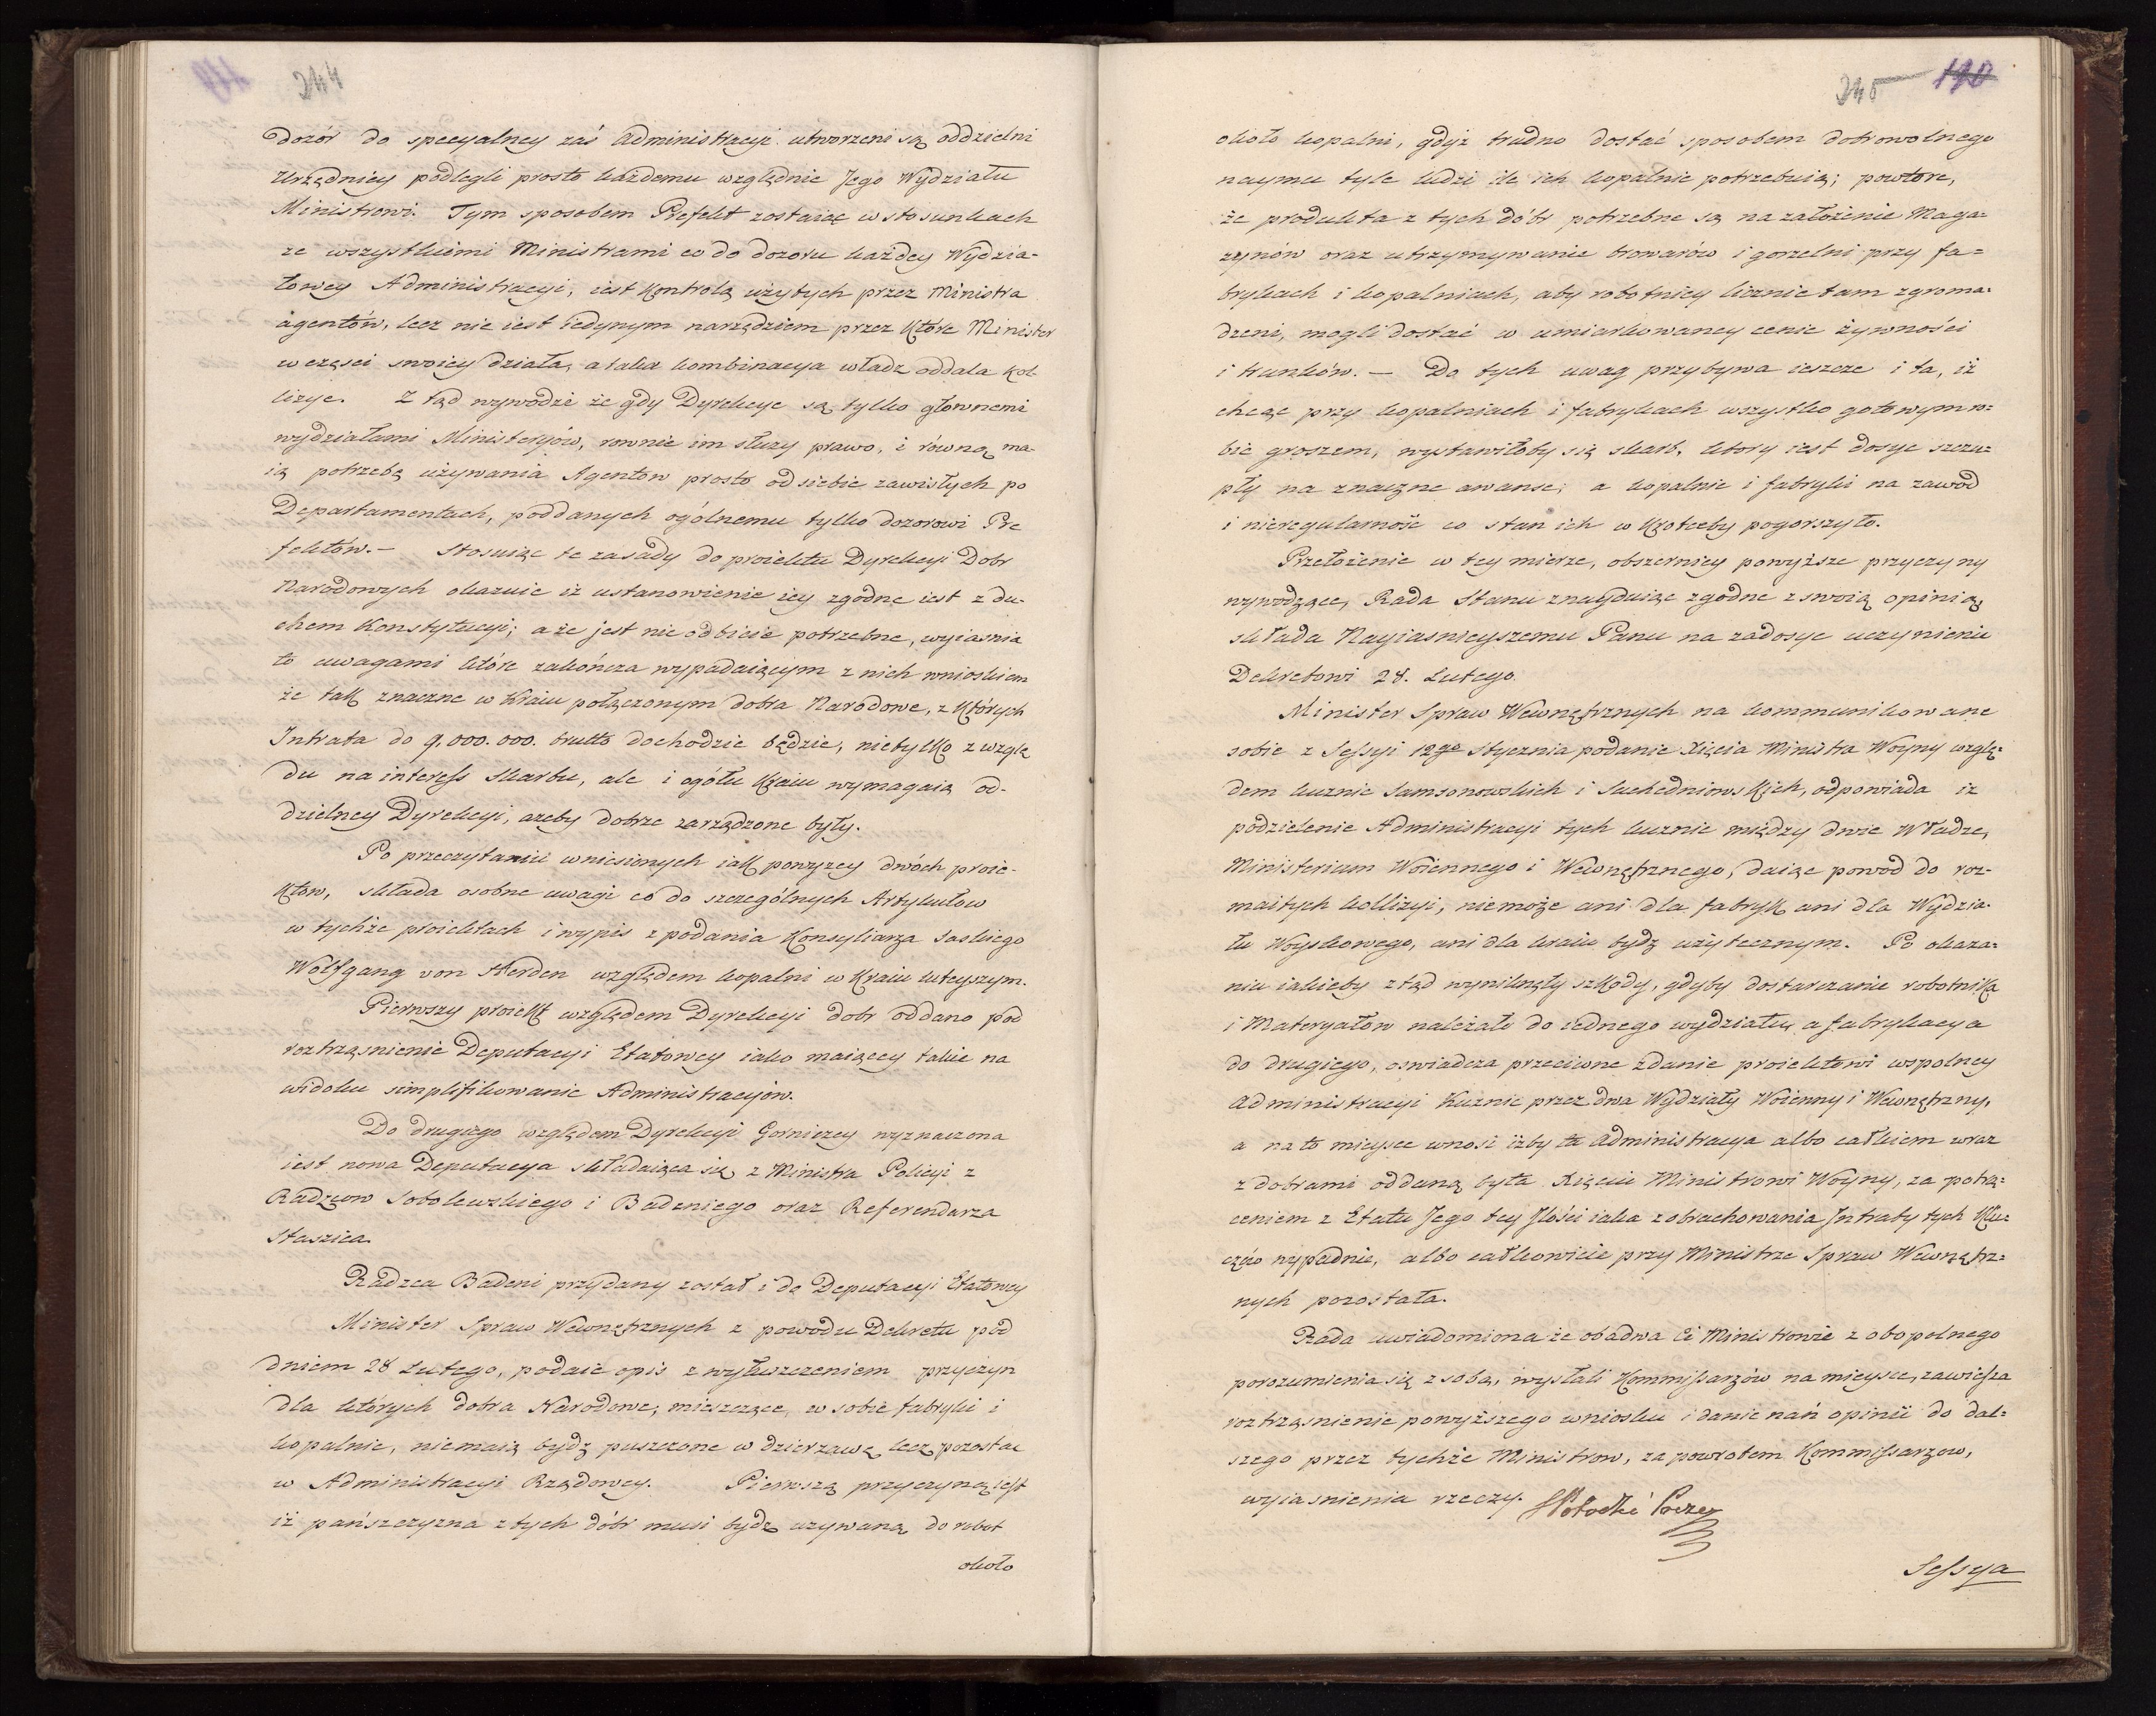 244
dozór do specyalney zaś Administracyi utworzeni są oddzielni
Urzędnicy podlegli prosto każdemu względnie Jego Wydziału
Ministrowi. Tym sposobem Prefekt zostaiąc w stosunkach
ze wszystkiemi Ministrami co do dozoru każdey Wydzia-
łowey Administracyi, iest Kontrolą użytych przez Ministra
agentów, lecz nie iest iedynym narzędziem przez które Minister
w części swoiey działa, a taka kombinacya władz oddala kol
lizye. Z tąd wywodzi że gdy Dyrekcye są tylko głownemi
wydziałami Ministeryów, rownie im służy prawo, i równą ma-
ią potrzebę używania Agentow prosto od siebie zawisłych po
Departamentach, poddanych ogólnemu tylko dozorowi Pre
fektów.— Stosuiąc te zasady do proiektu Dyrekcyi Dobr
Narodowych okazuie iż ustanowienie iey zgodne iest z du-
chem Konstytucyi; a że jest nieodbicie potrzebne, wyiaśnia
to uwagami które zakończa wypadaiącym z nich wnioskiem
że tak znaczne w Kraiu połączonym dobra Narodowe, z których
Intrata do 9,000.000. brutto dochodzić będzie, nietylko z wzglę
du na interess Skarbu, ale i ogółu Kraiu wymagaią od-
dzielney Dyrekcyi, ażeby dobrze zarządzone były.
Po przeczytaniu wniesionych iak powyżey dwóch proie-
któw, składa osobne uwagi co do szczególnych Artykułow
w tychże proiektach i wypis z podania Konsyliarza Saskiego
Wolfgang von Herden względem kopalni w Kraiu tuteyszym.
Pierwszy proiekt względem Dyrekcyi dobr oddano pod
roztrząśnienie Deputacyi Etatowey iako maiącey takie na
widoku simplifikowanie Administracyów.
Do drugiego względem Dyrekcyi Gorniczey wyznaczona
iest nowa Deputacya składaiąca się z Ministra Policyi z
Radzcow Sobolewskiego i Badeniego oraz Referendarza
Staszica.
Radzca Badeni przydany został i do Deputacyi Etatowey
Minister Spraw Wewnętrznych z powodu Dekretu pod
dniem 28 Lutego, podaie opis z wyłuszczeniem przyczyn
dla których dobra Narodowe, mieszczące w sobie fabryki i
kopalnie, niemaią bydź puszczone w dzierzawę lecz pozostać
w Administracyi Rządowey. Pierwszą przyczyną iest
iż pańszczyzna z tych dóbr musi bydź uzywaną do robot
około
245 120
około kopalni, gdyż trudno dostać sposobem dobrowolnego
naymu tyle ludzi ile ich kopalnie potrzebuią; powtore,
że produkta z tych dóbr potrzebne są na założenie Maga=
zynów oraz utrzymywanie browarów i gorzelni przy fa=
brykach i kopalniach, aby robotnicy licznie tam zgroma=
dzeni, mogli dostać w umiarkowaney cenie żywności
i trunków. — Do tych uwag przybywa ieszcze i ta, iż
chcąc przy kopalniach i fabrykach wszystko gotowym ro=
bić groszem, wystawiłoby się skarb, ktory iest dosyc szczu=
pły na znaczne awanse; a kopalnie i fabryki na zawod
i nieregularność co stan ich w krotceby pogorszyło.
Przełożenie w tey mierze, obszerniey powyższe przyczyny
wywodzące, Rada Stanu znayduiąc zgodne z swoią opinią,
składa Nayiasnieyszemu Panu na zadosyc uczynieniu
Dekretowi 28. Lutego.
Minister Spraw Wewnętrznych na kommunikowane
sobie z Sessyi 12go Stycznia podanie Xięcia Ministra Woyny wzglę=
dem kuznic Samsonowskich i Suchedniowskich, odpowiada iz
podzielenie Administracyi tych kuznic między dwie Władze,
Ministerium Woiennego i Wewnętrznego, daiąc powod do roz-
maitych kollizyi, niemoże ani dla fabryk ani dla Wydzia-
łu Woyskowego, ani dla kraiu bydź użytecznym. Po okaza=
niu iakieby ztąd wyniknęły szkody, gdyby dostarczanie robotnika
i Materyałow należało do iednego wydziału, a fabrykacya
do drugiego, oswiadcza przeciwne zdanie proiektowi wspolney
Administracyi Kuznic przez dwa Wydziały Woienny i Wewnętrzny,
a na to mieysce wnosi iżby ta Administracya albo całkiem wraz
z dobrami oddaną była Xięciu Ministrowi Woyny, za potrą=
ceniem z Etatu Jego tey Ilości iaka z obrachowania Intraty tych Klu=
czów wypadnie, albo całkowicie przy Ministrze Spraw Wewnętrz=
nych pozostała.
Rada uwiadomiona że obadwa Ci Ministrowie z obopolnego
porozumienia się z sobą, wysłali Kommissarzów na mieysce, zawiesza
roztrząśnienie powyższego wniosku i danie nań opinii do dal=
szego przez tychże Ministrow, za powrotem Kommissarzow,
wyiasnienia rzeczy. SPotocki Prezes
Sessya